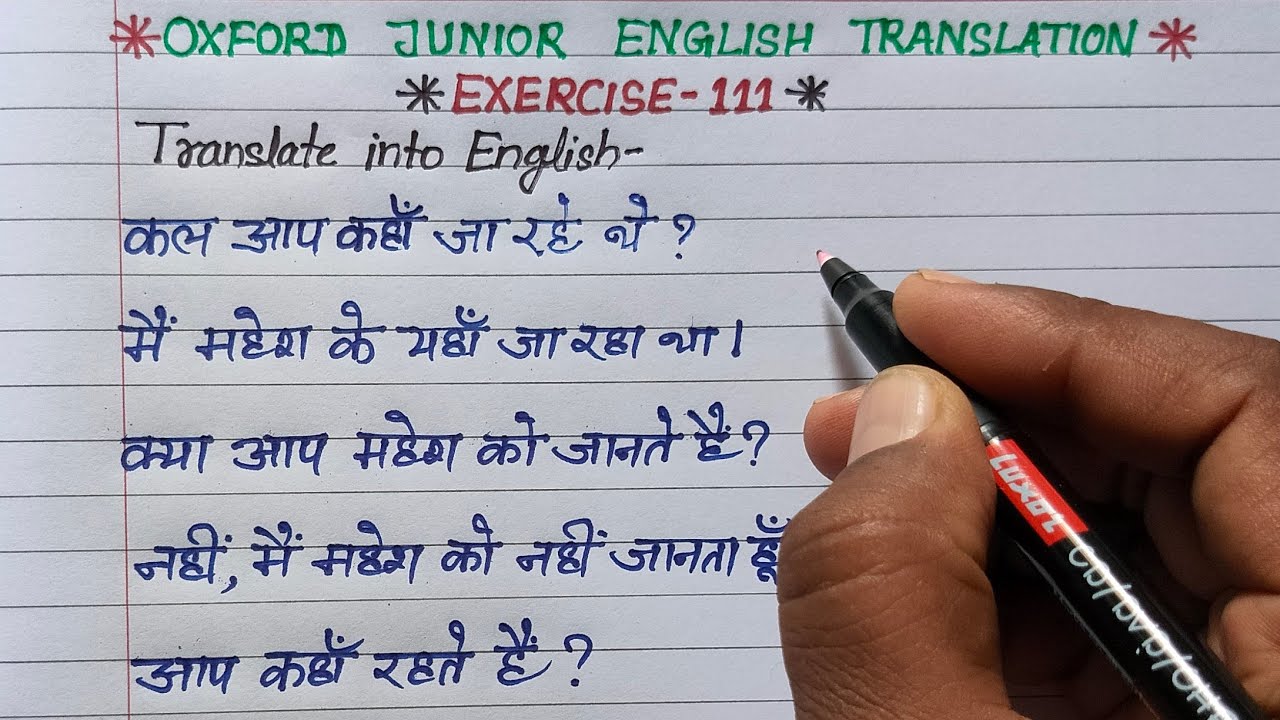 *OXFORD JUNIOR ENGLISH TRANSLATION*
*EXERCISE-111*
Translate into English-
कल आप कहाँ जा रहे थे?
मैं महेश के यहाँ जा रहा था।
क्या आप महेश को जानते हैं?
नहीं, मैं महेश को नहीं जानता हूँ
आप कहाँ रहते हैं?
LUXOR